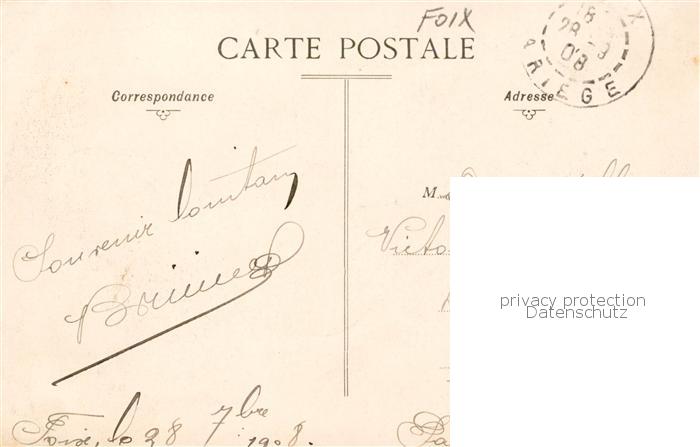 FOIX
CARTE POSTALE
18
28 - 9
08
ARIEGE
Correspondance
Adresse
M
Souvenir lointain
Victo
privacy protection
Datenschutz
Foix, le 28 7bre 1908.